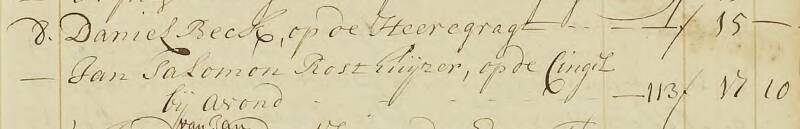 d. Daniel Beck, op de Heeregragt - - - / 15 —
— Jan Salomon Rost Huijzer, op de Cingel
bij avond - - - — 113 / 17 10
van Jan